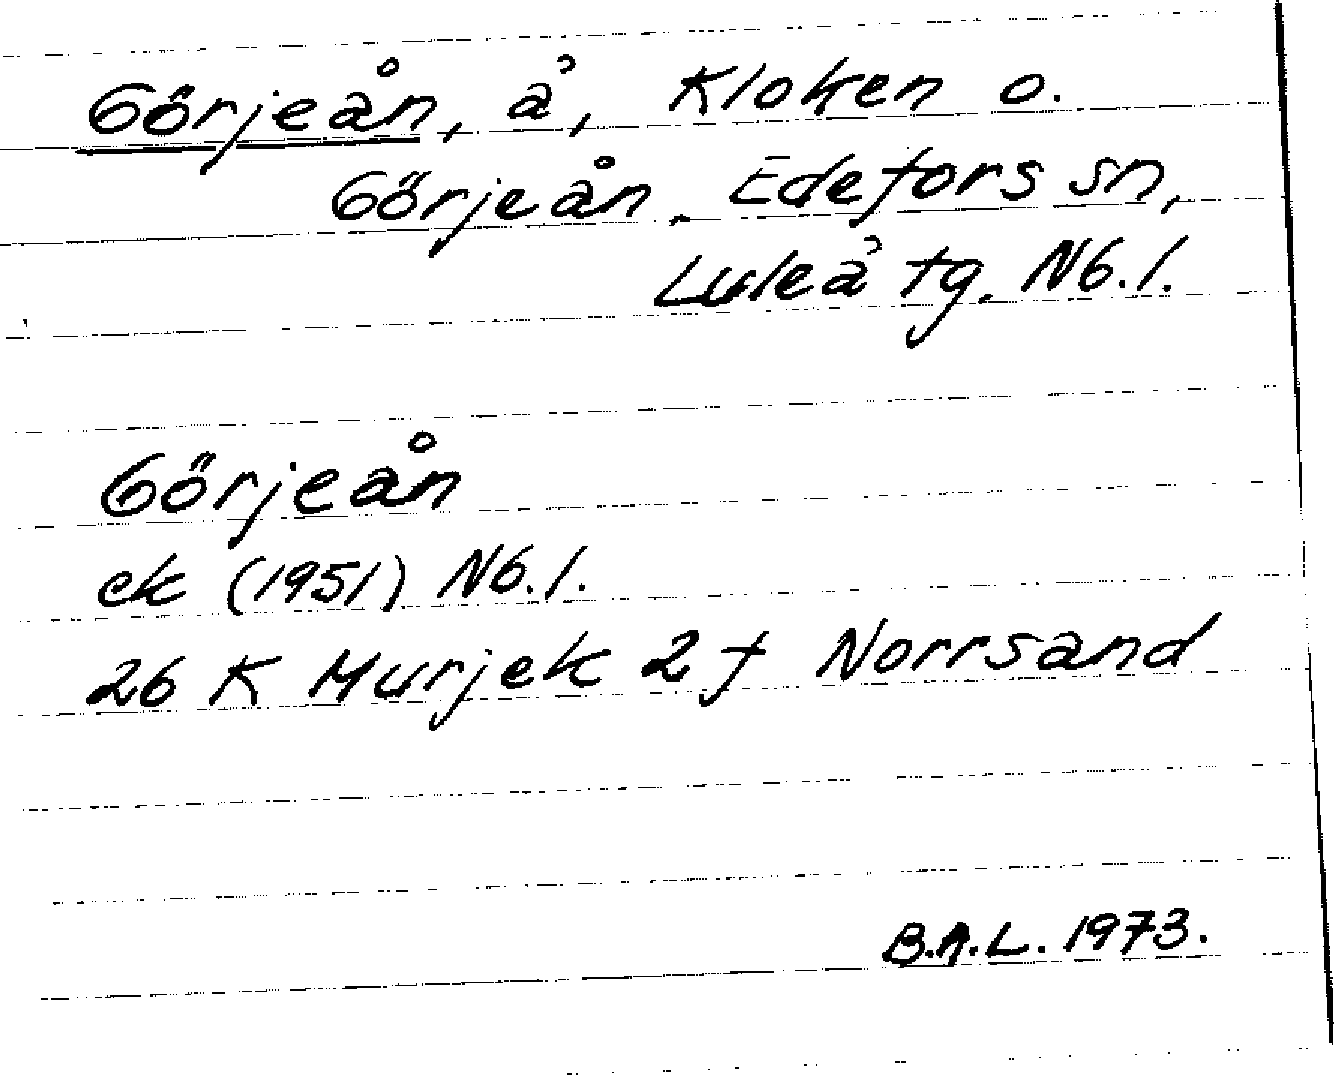 Görjeån, å, Kloken o.
Görjeån. Edefors sn,
Luleå tg. Nb.l.
Görjeån
ek (1951) Nb.l.
26 K Murjek 2 f Norrsand
B.A.L. 1973.